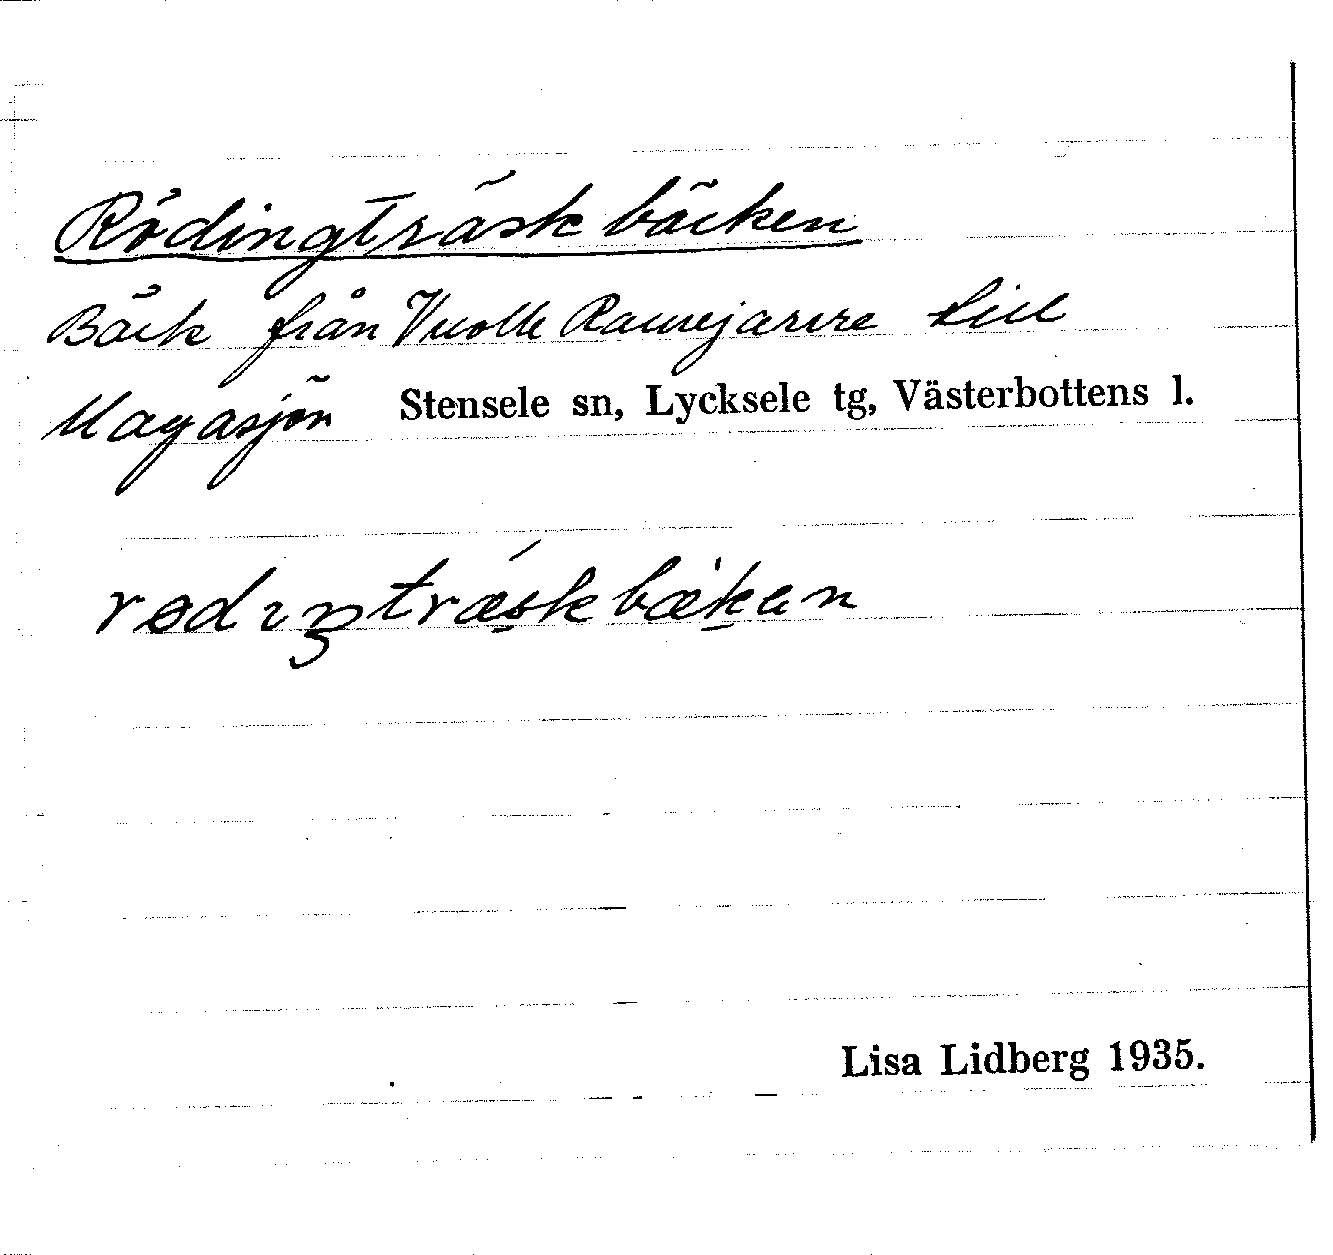 Rödingträskbäcken
Bäck från Vuolle Raurejaure till
Magasjön Stensele sn, Lycksele tg, Västerbottens l.
rødıŋtræskbækan
Lisa Lidberg 1935.